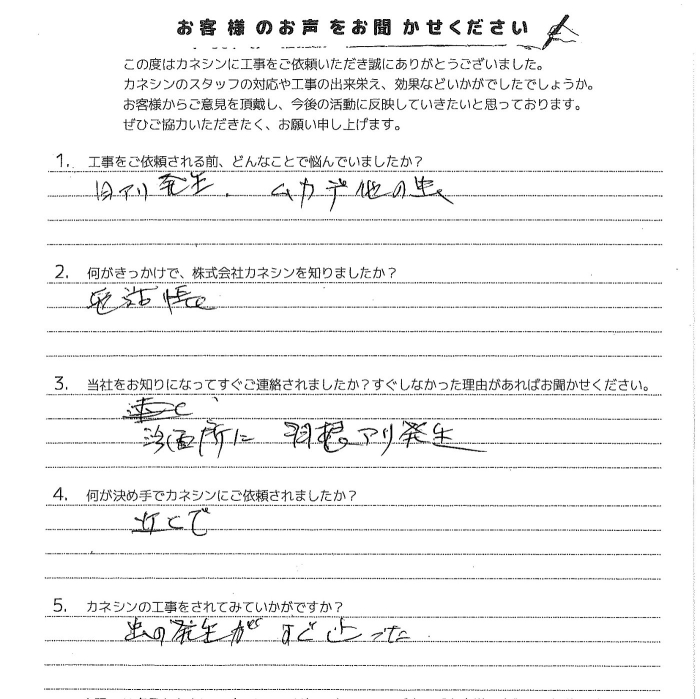 お客様のお声をお聞かせください
この度はカネシンに工事をご依頼いただき誠にありがとうございました。
カネシンのスタッフの対応や工事の出来栄え、効果などいかがでしたでしょうか。
お客様からご意見を頂戴し、今後の活動に反映していきたいと思っております。
ぜひご協力いただきたく、お願い申し上げます。
1. 工事をご依頼される前、どんなことで悩んでいましたか？
白アリ発生. ムカデ他の虫
2. 何がきっかけで、株式会社カネシンを知りましたか？
電話帳
3. 当社をお知りになってすぐご連絡されましたか？すぐしなかった理由があればお聞かせください。
洗面所に 羽根アリ発生
4. 何が決め手でカネシンにご依頼されましたか？
近くで
5. カネシンの工事をされてみていかがですか？
虫の発生が すぐ止った